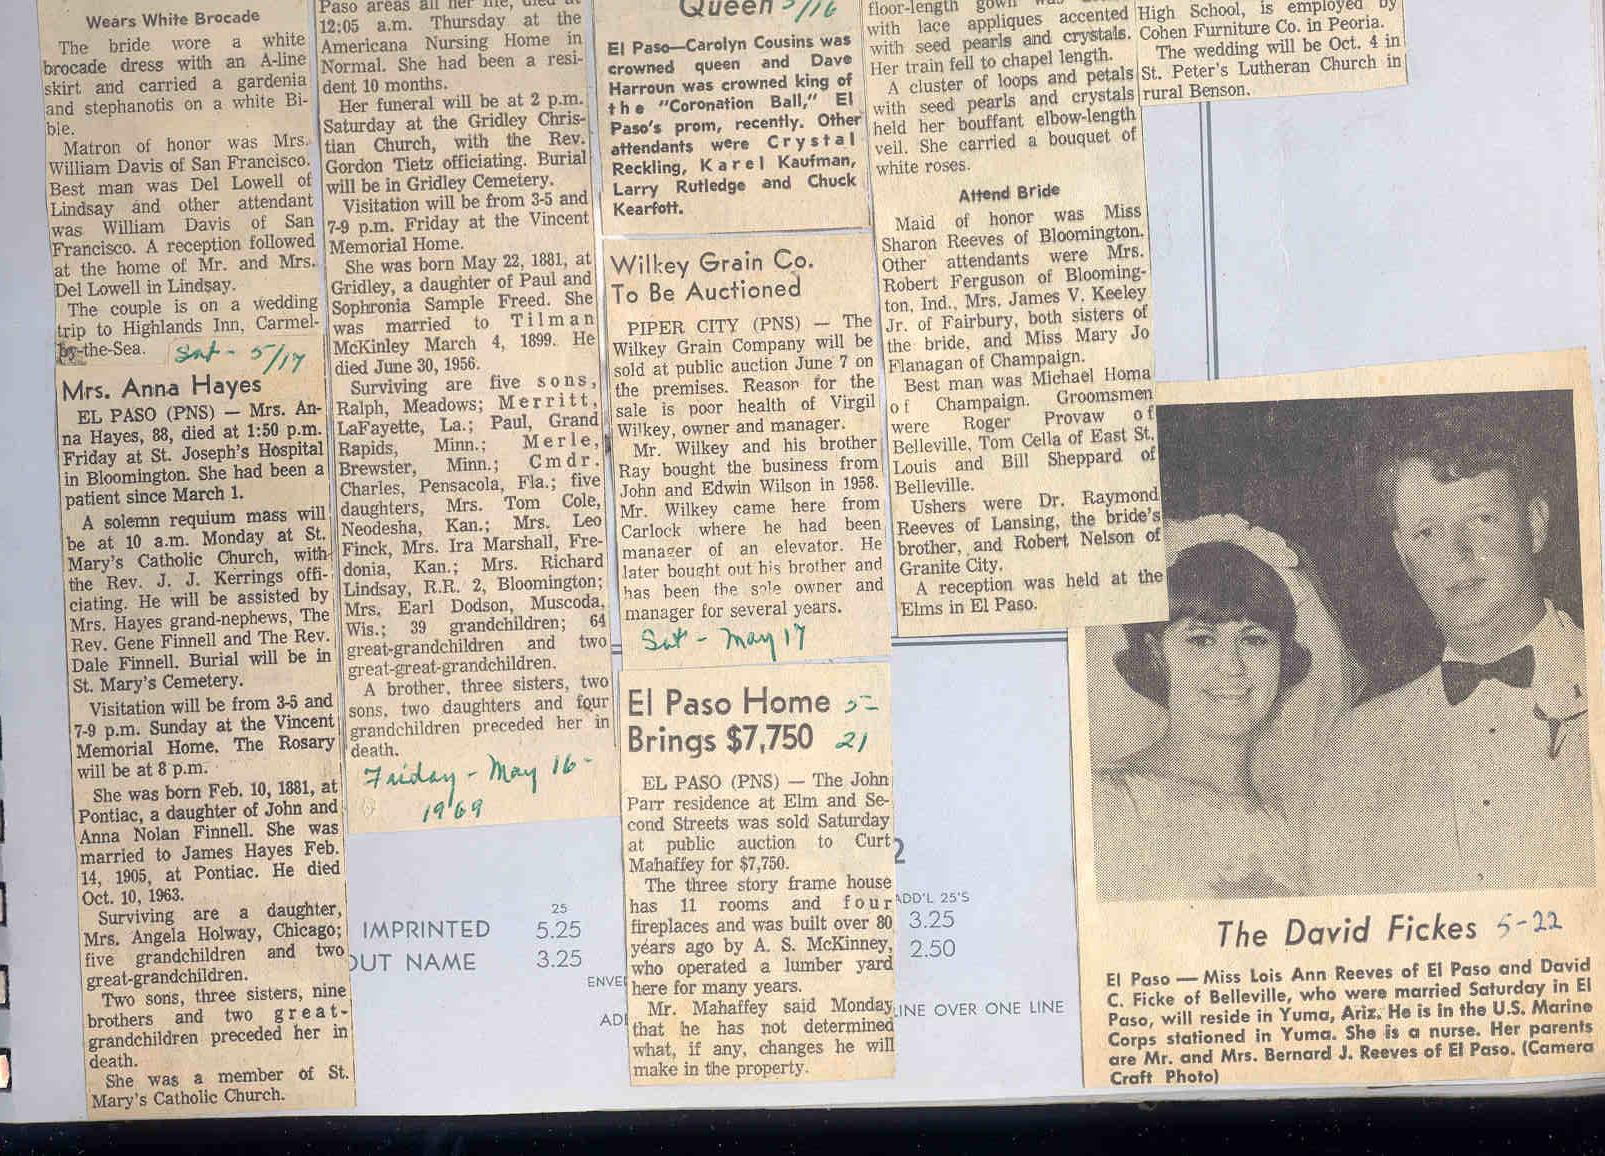 Wears White Brocade
The bride wore a white
brocade dress with an A-line
skirt and carried a gardenia
and stephanotis on a white Bi-
ble.
Matron of honor was Mrs.
William Davis of San Francisco.
Best man was Del Lowell of
Lindsay and other attendant
was William Davis of San
Francisco. A reception followed
at the home of Mr. and Mrs.
Del Lowell in Lindsay.
The couple is on a wedding
trip to Highlands Inn, Carmel-
by-the-Sea.
Sat - 5/17
Mrs. Anna Hayes
EL PASO (PNS) — Mrs. An-
na Hayes, 88, died at 1:50 p.m.
Friday at St. Joseph's Hospital
in Bloomington. She had been a
patient since March 1.
A solemn requium mass will
be at 10 a.m. Monday at St.
Mary's Catholic Church, with
the Rev. J. J. Kerrings offi-
ciating. He will be assisted by
Mrs. Hayes grand-nephews, The
Rev. Gene Finnell and The Rev.
Dale Finnell. Burial will be in
St. Mary's Cemetery.
Visitation will be from 3-5 and
7-9 p.m. Sunday at the Vincent
Memorial Home. The Rosary
will be at 8 p.m.
She was born Feb. 10, 1881, at
Pontiac, a daughter of John and
Anna Nolan Finnell. She was
married to James Hayes Feb.
14, 1905, at Pontiac. He died
Oct. 10, 1963.
Surviving are a daughter,
Mrs. Angela Holway, Chicago;
five grandchildren and two
great-grandchildren.
Two sons, three sisters, nine
brothers and two great-
grandchildren preceded her in
death.
She was a member of St.
Mary's Catholic Church.
Paso areas all her life, died at
12:05 a.m. Thursday at the
Americana Nursing Home in
Normal. She had been a resi-
dent 10 months.
Her funeral will be at 2 p.m.
Saturday at the Gridley Chris-
tian Church, with the Rev.
Gordon Tietz officiating. Burial
will be in Gridley Cemetery.
Visitation will be from 3-5 and
7-9 p.m. Friday at the Vincent
Memorial Home.
She was born May 22, 1881, at
Gridley, a daughter of Paul and
Sophronia Sample Freed. She
was married to Tilman
McKinley March 4, 1899. He
died June 30, 1956.
Surviving are five sons,
Ralph, Meadows; Merritt,
LaFayette, La.; Paul, Grand
Rapids, Minn.; Merle,
Brewster, Minn.; Cmdr.
Charles, Pensacola, Fla.; five
daughters, Mrs. Tom Cole,
Neodesha, Kan.; Mrs. Leo
Finck, Mrs. Ira Marshall, Fre-
donia, Kan.; Mrs. Richard
Lindsay, R.R. 2, Bloomington;
Mrs. Earl Dodson, Muscoda,
Wis.; 39 grandchildren; 64
great-grandchildren and two
great-great-grandchildren.
A brother, three sisters, two
sons, two daughters and four
grandchildren preceded her in
death.
Friday - May 16 -
1969
Queen 5/16
El Paso—Carolyn Cousins was
crowned queen and Dave
Harroun was crowned king of
the "Coronation Ball," El
Paso's prom, recently. Other
attendants were Crystal
Reckling, Karel Kaufman,
Larry Rutledge and Chuck
Kearfott.
Wilkey Grain Co.
To Be Auctioned
PIPER CITY (PNS) — The
Wilkey Grain Company will be
sold at public auction June 7 on
the premises. Reason for the
sale is poor health of Virgil
Wilkey, owner and manager.
Mr. Wilkey and his brother
Ray bought the business from
John and Edwin Wilson in 1958.
Mr. Wilkey came here from
Carlock where he had been
manager of an elevator. He
later bought out his brother and
has been the sole owner and
manager for several years.
Sat - May 17
El Paso Home 5-
Brings $7,750 21
EL PASO (PNS) — The John
Parr residence at Elm and Se-
cond Streets was sold Saturday
at public auction to Curt
Mahaffey for $7,750.
The three story frame house
has 11 rooms and four
fireplaces and was built over 80
years ago by A. S. McKinney,
who operated a lumber yard
here for many years.
Mr. Mahaffey said Monday
that he has not determined
what, if any, changes he will
make in the property.
floor-length gown was
with lace appliques accented
with seed pearls and crystals.
Her train fell to chapel length.
A cluster of loops and petals
with seed pearls and crystals
held her bouffant elbow-length
veil. She carried a bouquet of
white roses.
Attend Bride
Maid of honor was Miss
Sharon Reeves of Bloomington.
Other attendants were Mrs.
Robert Ferguson of Blooming-
ton, Ind., Mrs. James V. Keeley
Jr. of Fairbury, both sisters of
the bride, and Miss Mary Jo
Flanagan of Champaign.
Best man was Michael Homa
of Champaign. Groomsmen
were Roger Provaw of
Belleville, Tom Cella of East St.
Louis and Bill Sheppard of
Belleville.
Ushers were Dr. Raymond
Reeves of Lansing, the bride's
brother, and Robert Nelson of
Granite City.
A reception was held at the
Elms in El Paso.
High School, is employed by
Cohen Furniture Co. in Peoria.
The wedding will be Oct. 4 in
St. Peter's Lutheran Church in
rural Benson.
The David Fickes 5-22
El Paso — Miss Lois Ann Reeves of El Paso and David
C. Ficke of Belleville, who were married Saturday in El
Paso, will reside in Yuma, Ariz. He is in the U.S. Marine
Corps stationed in Yuma. She is a nurse. Her parents
are Mr. and Mrs. Bernard J. Reeves of El Paso. (Camera
Craft Photo)
25
IMPRINTED 5.25
OUT NAME 3.25
ENVE
AD
2
ADD'L 25'S
3.25
2.50
LINE OVER ONE LINE